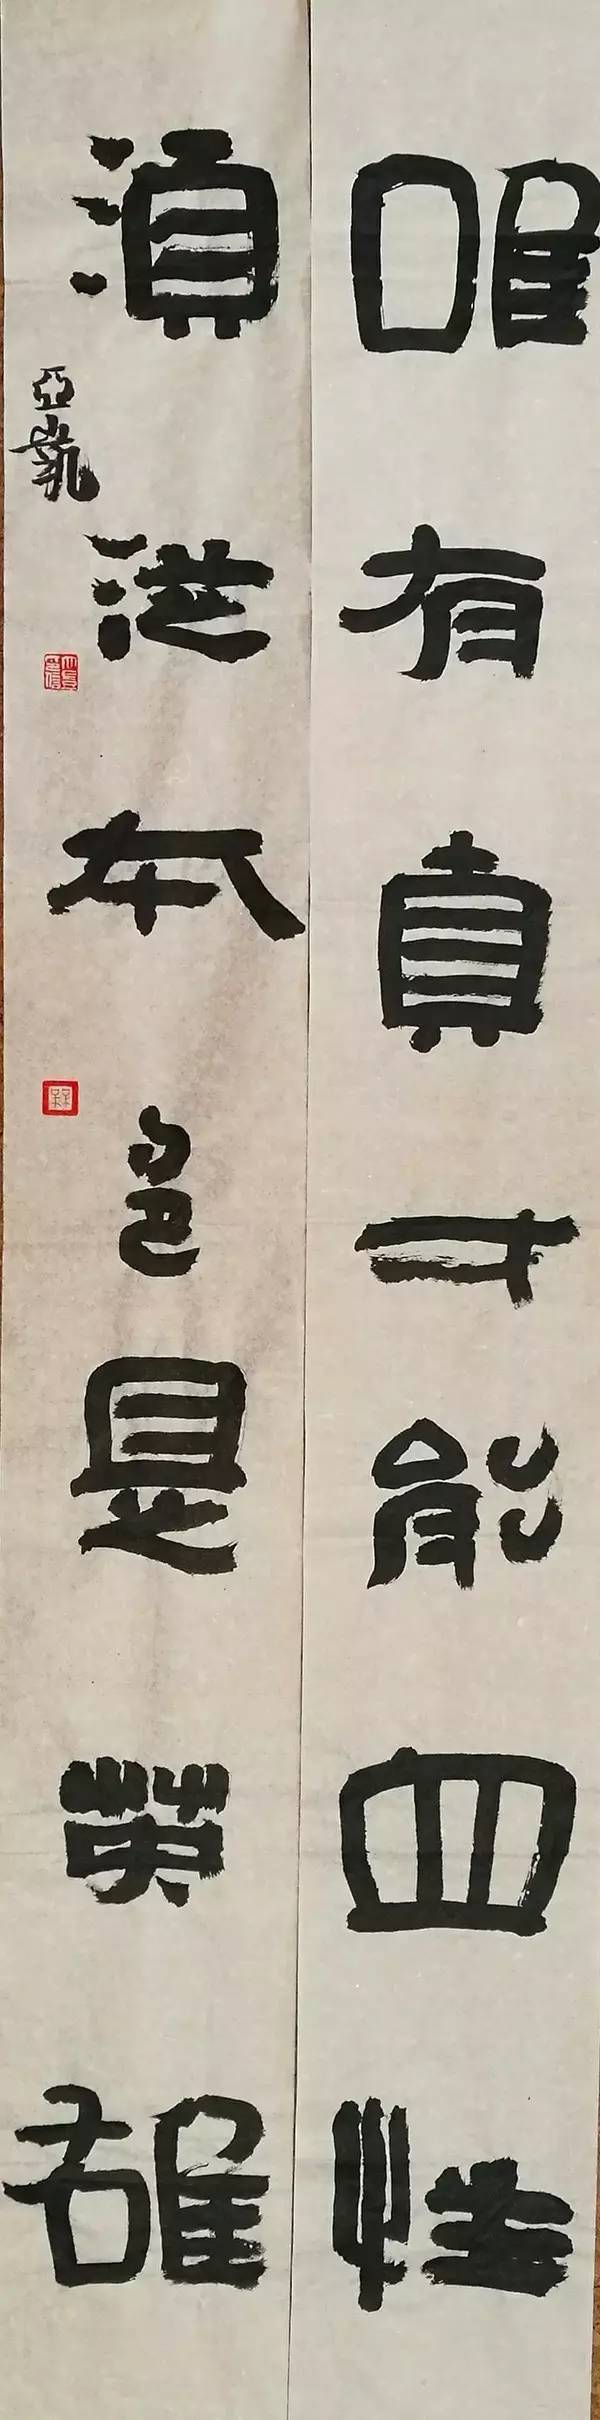 唯有真才能血性
湏從本色是英雄
亞凱